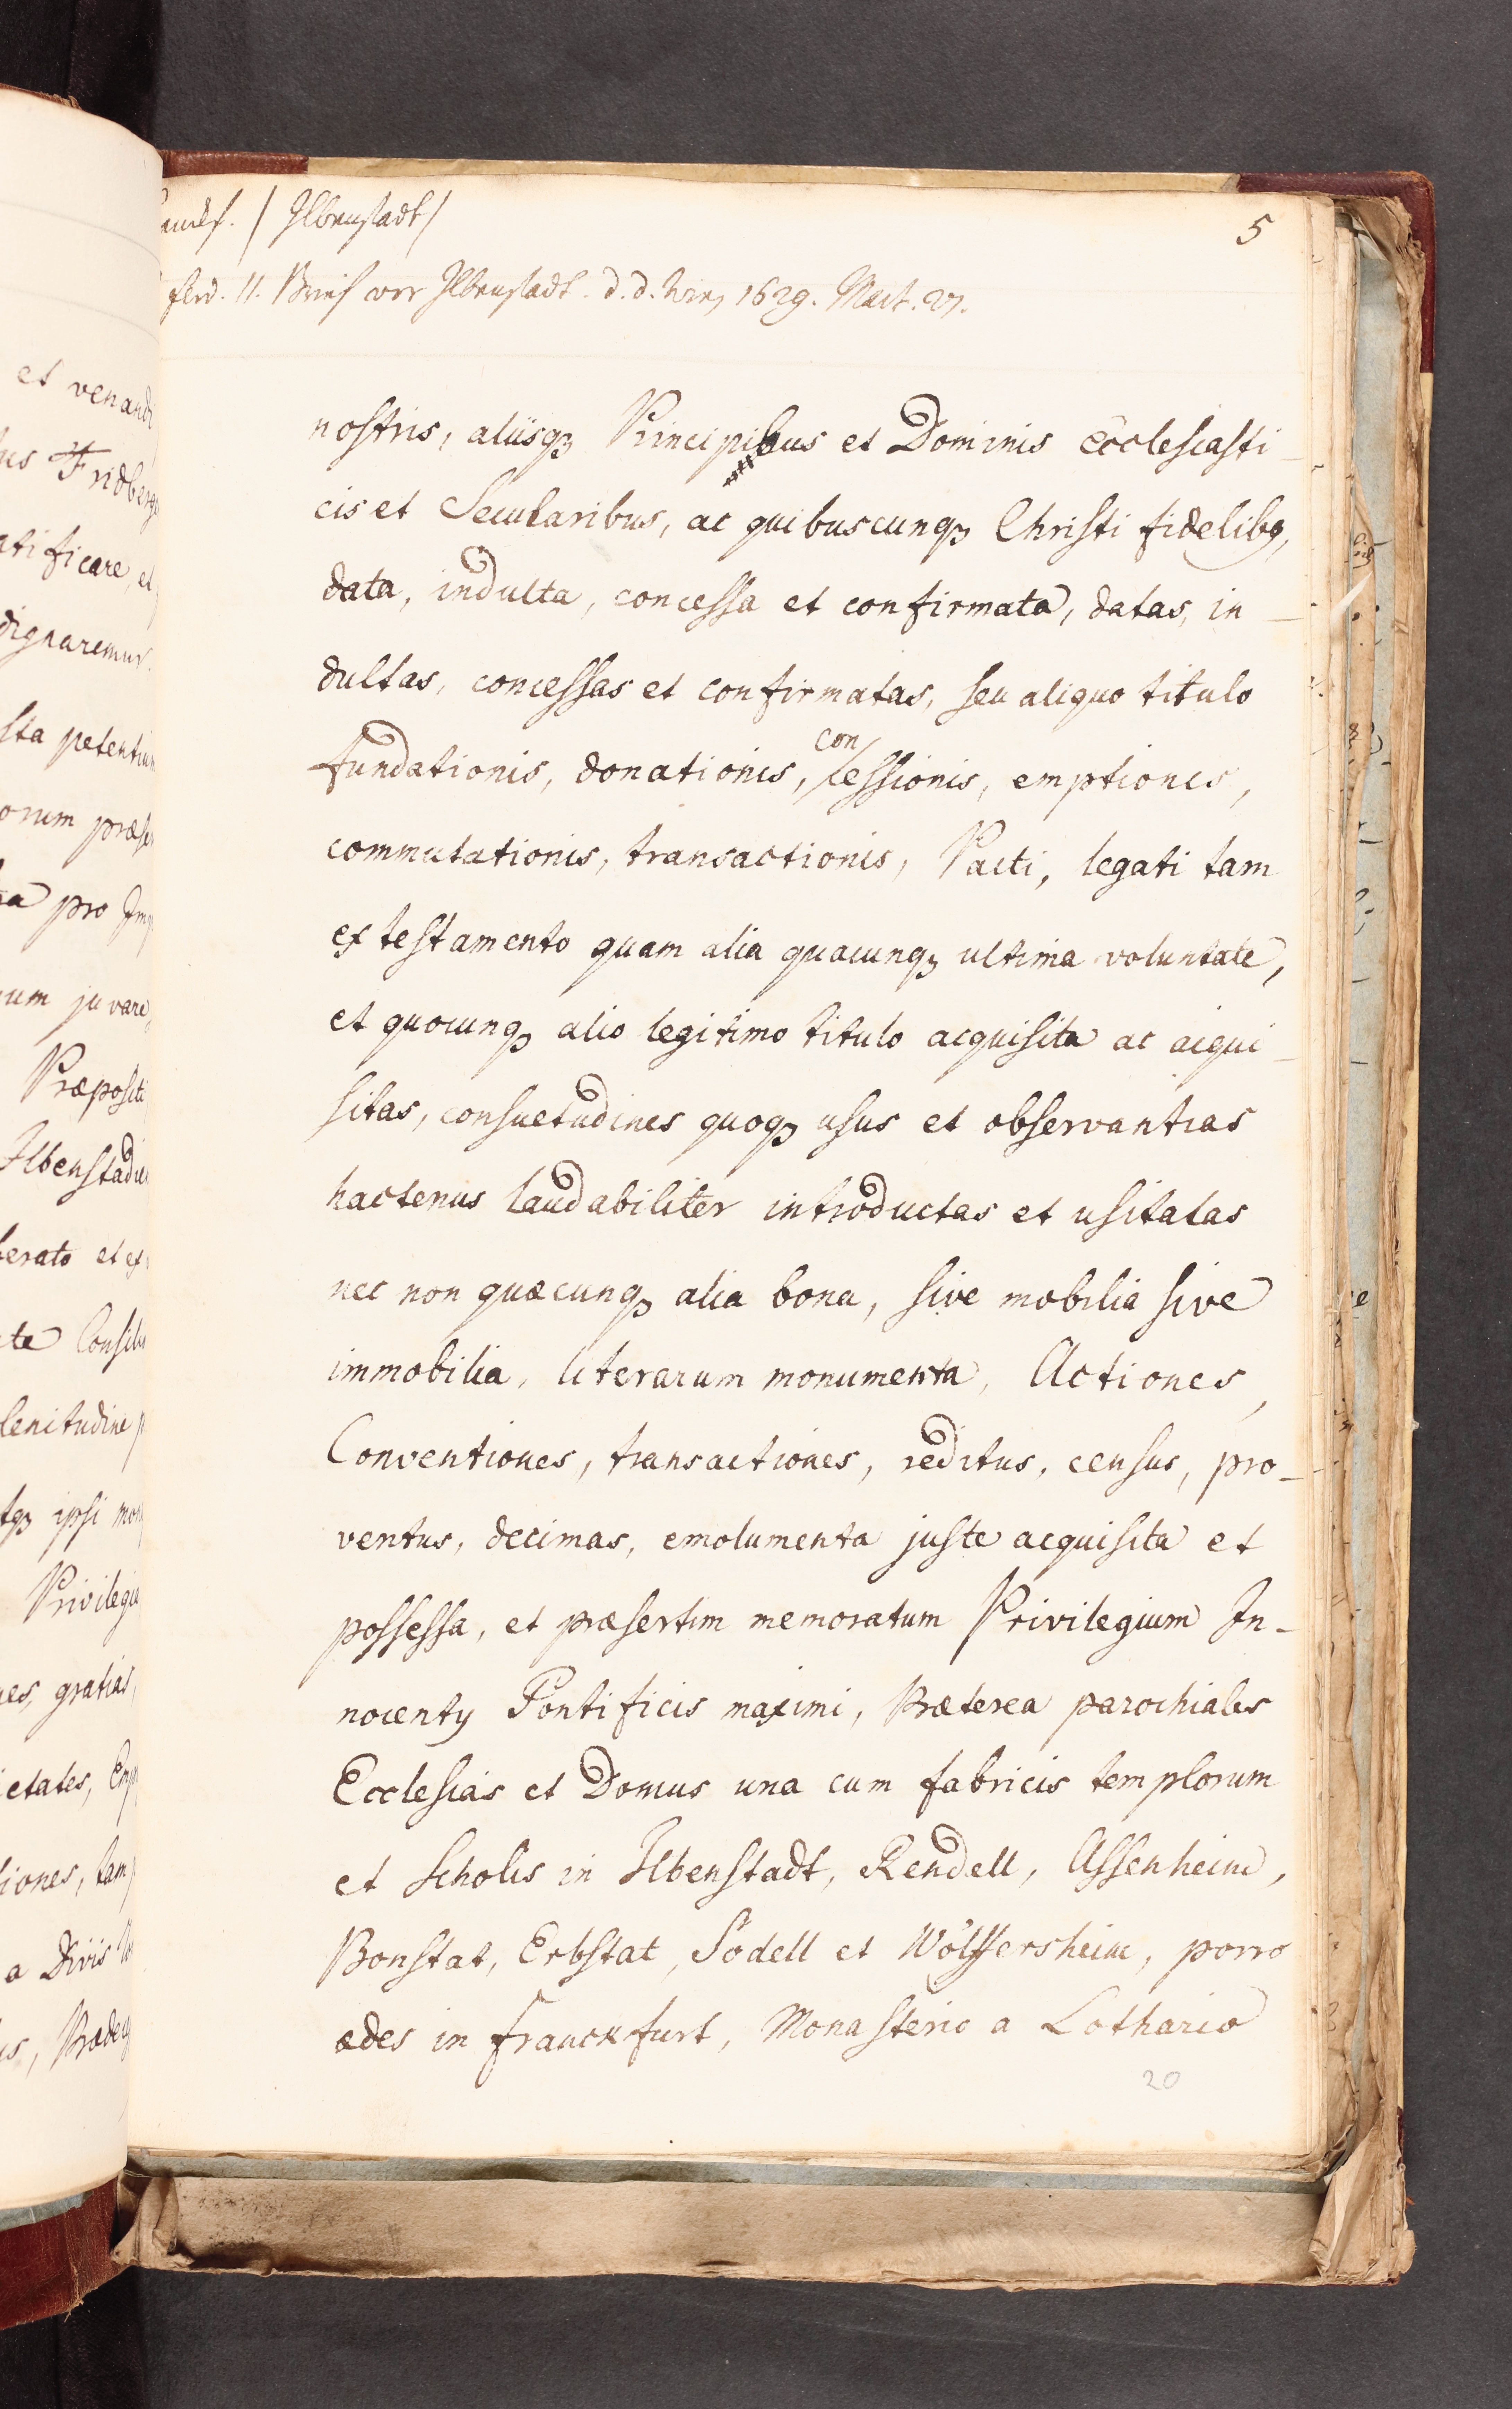 / Ilbenstadt /
5
Ferd. II. Brief vor Ilbenstadt. d. d. Wien, 1629. Mart. 27.
nostris, aliisqꝫ Principibus et Dominis Ecclesiasti-
cis et Secularibus, ac quibuscunqꝫ Christi fidelibꝯ,
data, indulta, concessa et confirmata, datas, in-
dultas, concessas et confirmatas, seu aliquo titulo
con
fundationis, donationis, cessionis, emptionis,
commutationis, transactionis, Pacti, legati tam
ex testamento quam alia quacunqꝫ ultima voluntate,
et quocunqꝫ alio legitimo titulo acquisita ac acqui-
sitas, consuetudines quoqꝫ usus et observantias
hactenus laudabiliter introductas et usitatas
nec non quæcunqꝫ alia bona, sive mobilia sive
immobilia, literarum monumenta, Actiones,
Conventiones, transactiones, reditus, census, pro-
ventus, decimas, emolumenta juste acquisita et
possessa, et præsertim memoratum Privilegium In-
nocentij Pontificis maximi, Præterea parochiales
Ecclesias et Domus una cum fabricis templorum
et Scholis in Ilbenstadt, Rendell, Assenheim,
Bonstat, Erbstat, Södell et Wölffersheim, porro
ædes in Franckfurt, Monasterio a Lothario
20
et venandi
Fridberg
tificare, et
dignaremur.
sta petentium
orum præse
pro Imp
um juvare,
Præpositi
Ilbenstadie
berato et ex
te Consilio
lenitudine p
tqꝫ ipsi mon
Privilegia
nes, gratias,
ietates, Emp
tiones, tam
a Divis